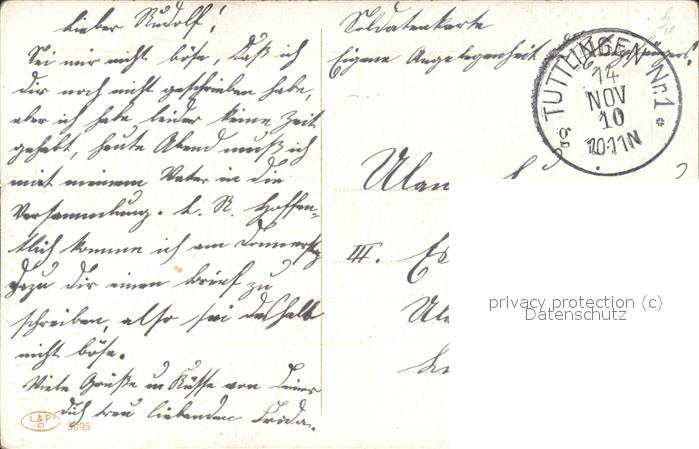 Lieber Rudolf!
Sei mir nicht böse, daß ich
dir noch nicht geschrieben habe,
aber ich habe leider keine Zeit
gehabt, heute Abend muß ich
mit meinem Vater in die
Versammlung. L. R. Hoffen-
tlich komme ich am Donnerstag
dazu dir einen brief zu
schreiben, also sei deshalb
nicht böse.
Viele Grüße u Küsse von Deiner
dich treu liebenden Frida.
L&P
P
3095
Soldatenkarte
Eigene Angelegenheit des Empfängers!
TUTTLINGEN Nr.1 *
14
NOV
10
10-11N
Ulan
III. Es
Ula
privacy protection (c)
Datenschutz